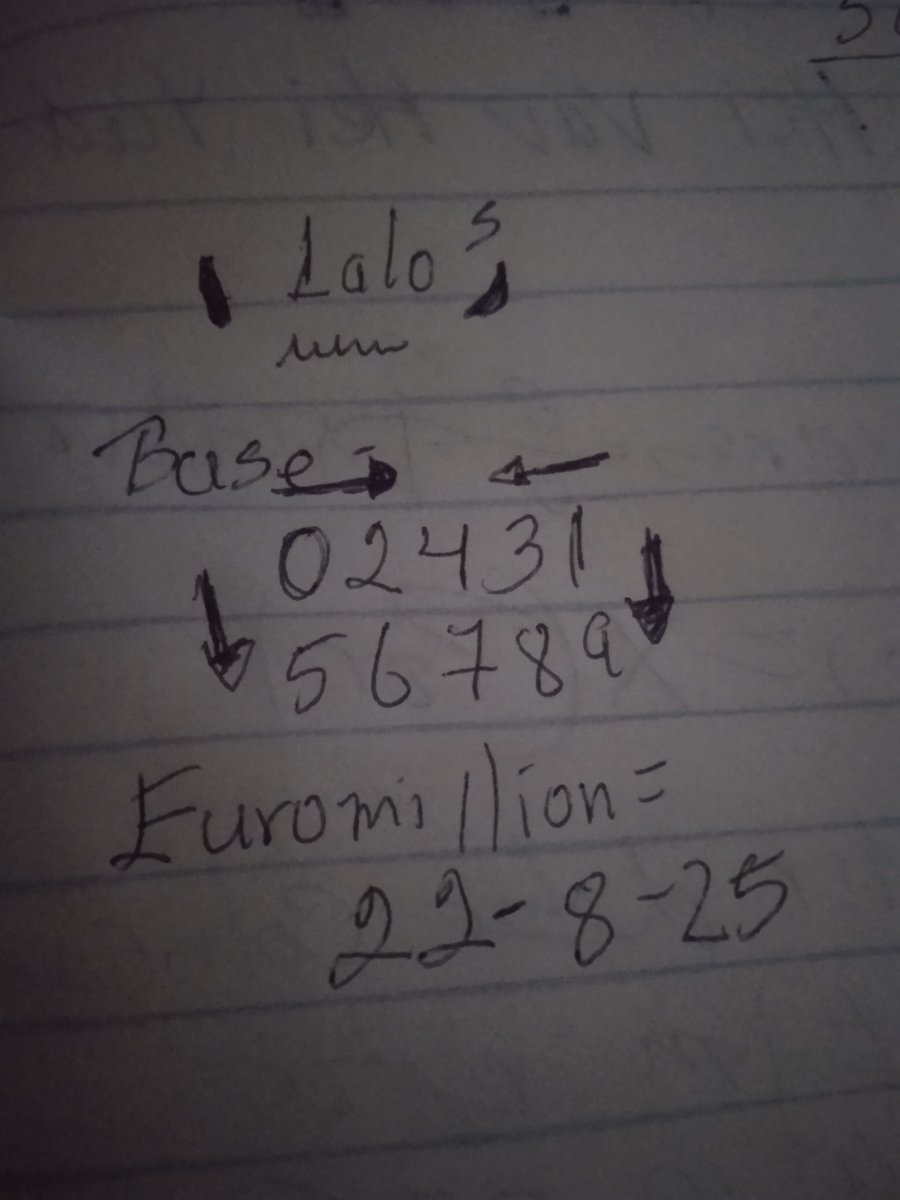 Lalo s
Base =
02431
56789
Euromillion=
22-8-25